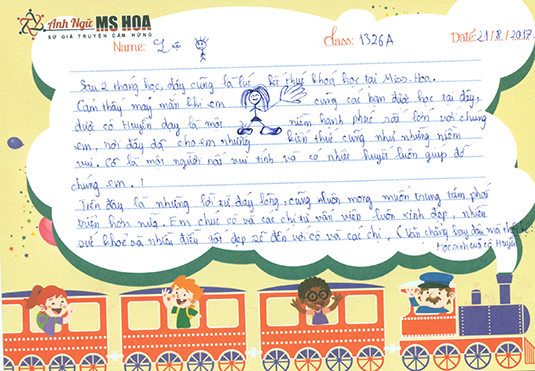 Anh Ngữ MS HOA
SỨ GIẢ TRUYỀN CẢM HỨNG
Name:
Class: 1326A
Date: 21/8/2017
Sau 2 tháng học, đây cũng là lúc kết thúc khoá học tại Miss Hoa.
Cảm thấy may mắn khi em cùng các bạn được học tại đây,
được cô Huyền dạy là một niềm hạnh phúc rất lớn với chúng
em, nơi đây đã cho em những kiến thức cũng như những niềm
vui. Cô là một người rất vui tính và có nhiệt huyết luôn giúp đỡ
chúng em. !
Trên đây là những lời từ đáy lòng, cũng mong muốn trung tâm phát
triển hơn nữa. Em chúc cô và các chị tư vấn viên luôn xinh đẹp, nhiều
sức khoẻ và nhiều điều tốt đẹp sẽ đến với cô và các chị. (Văn chẳng hay đâu mà
Học sinh của cô Huyền